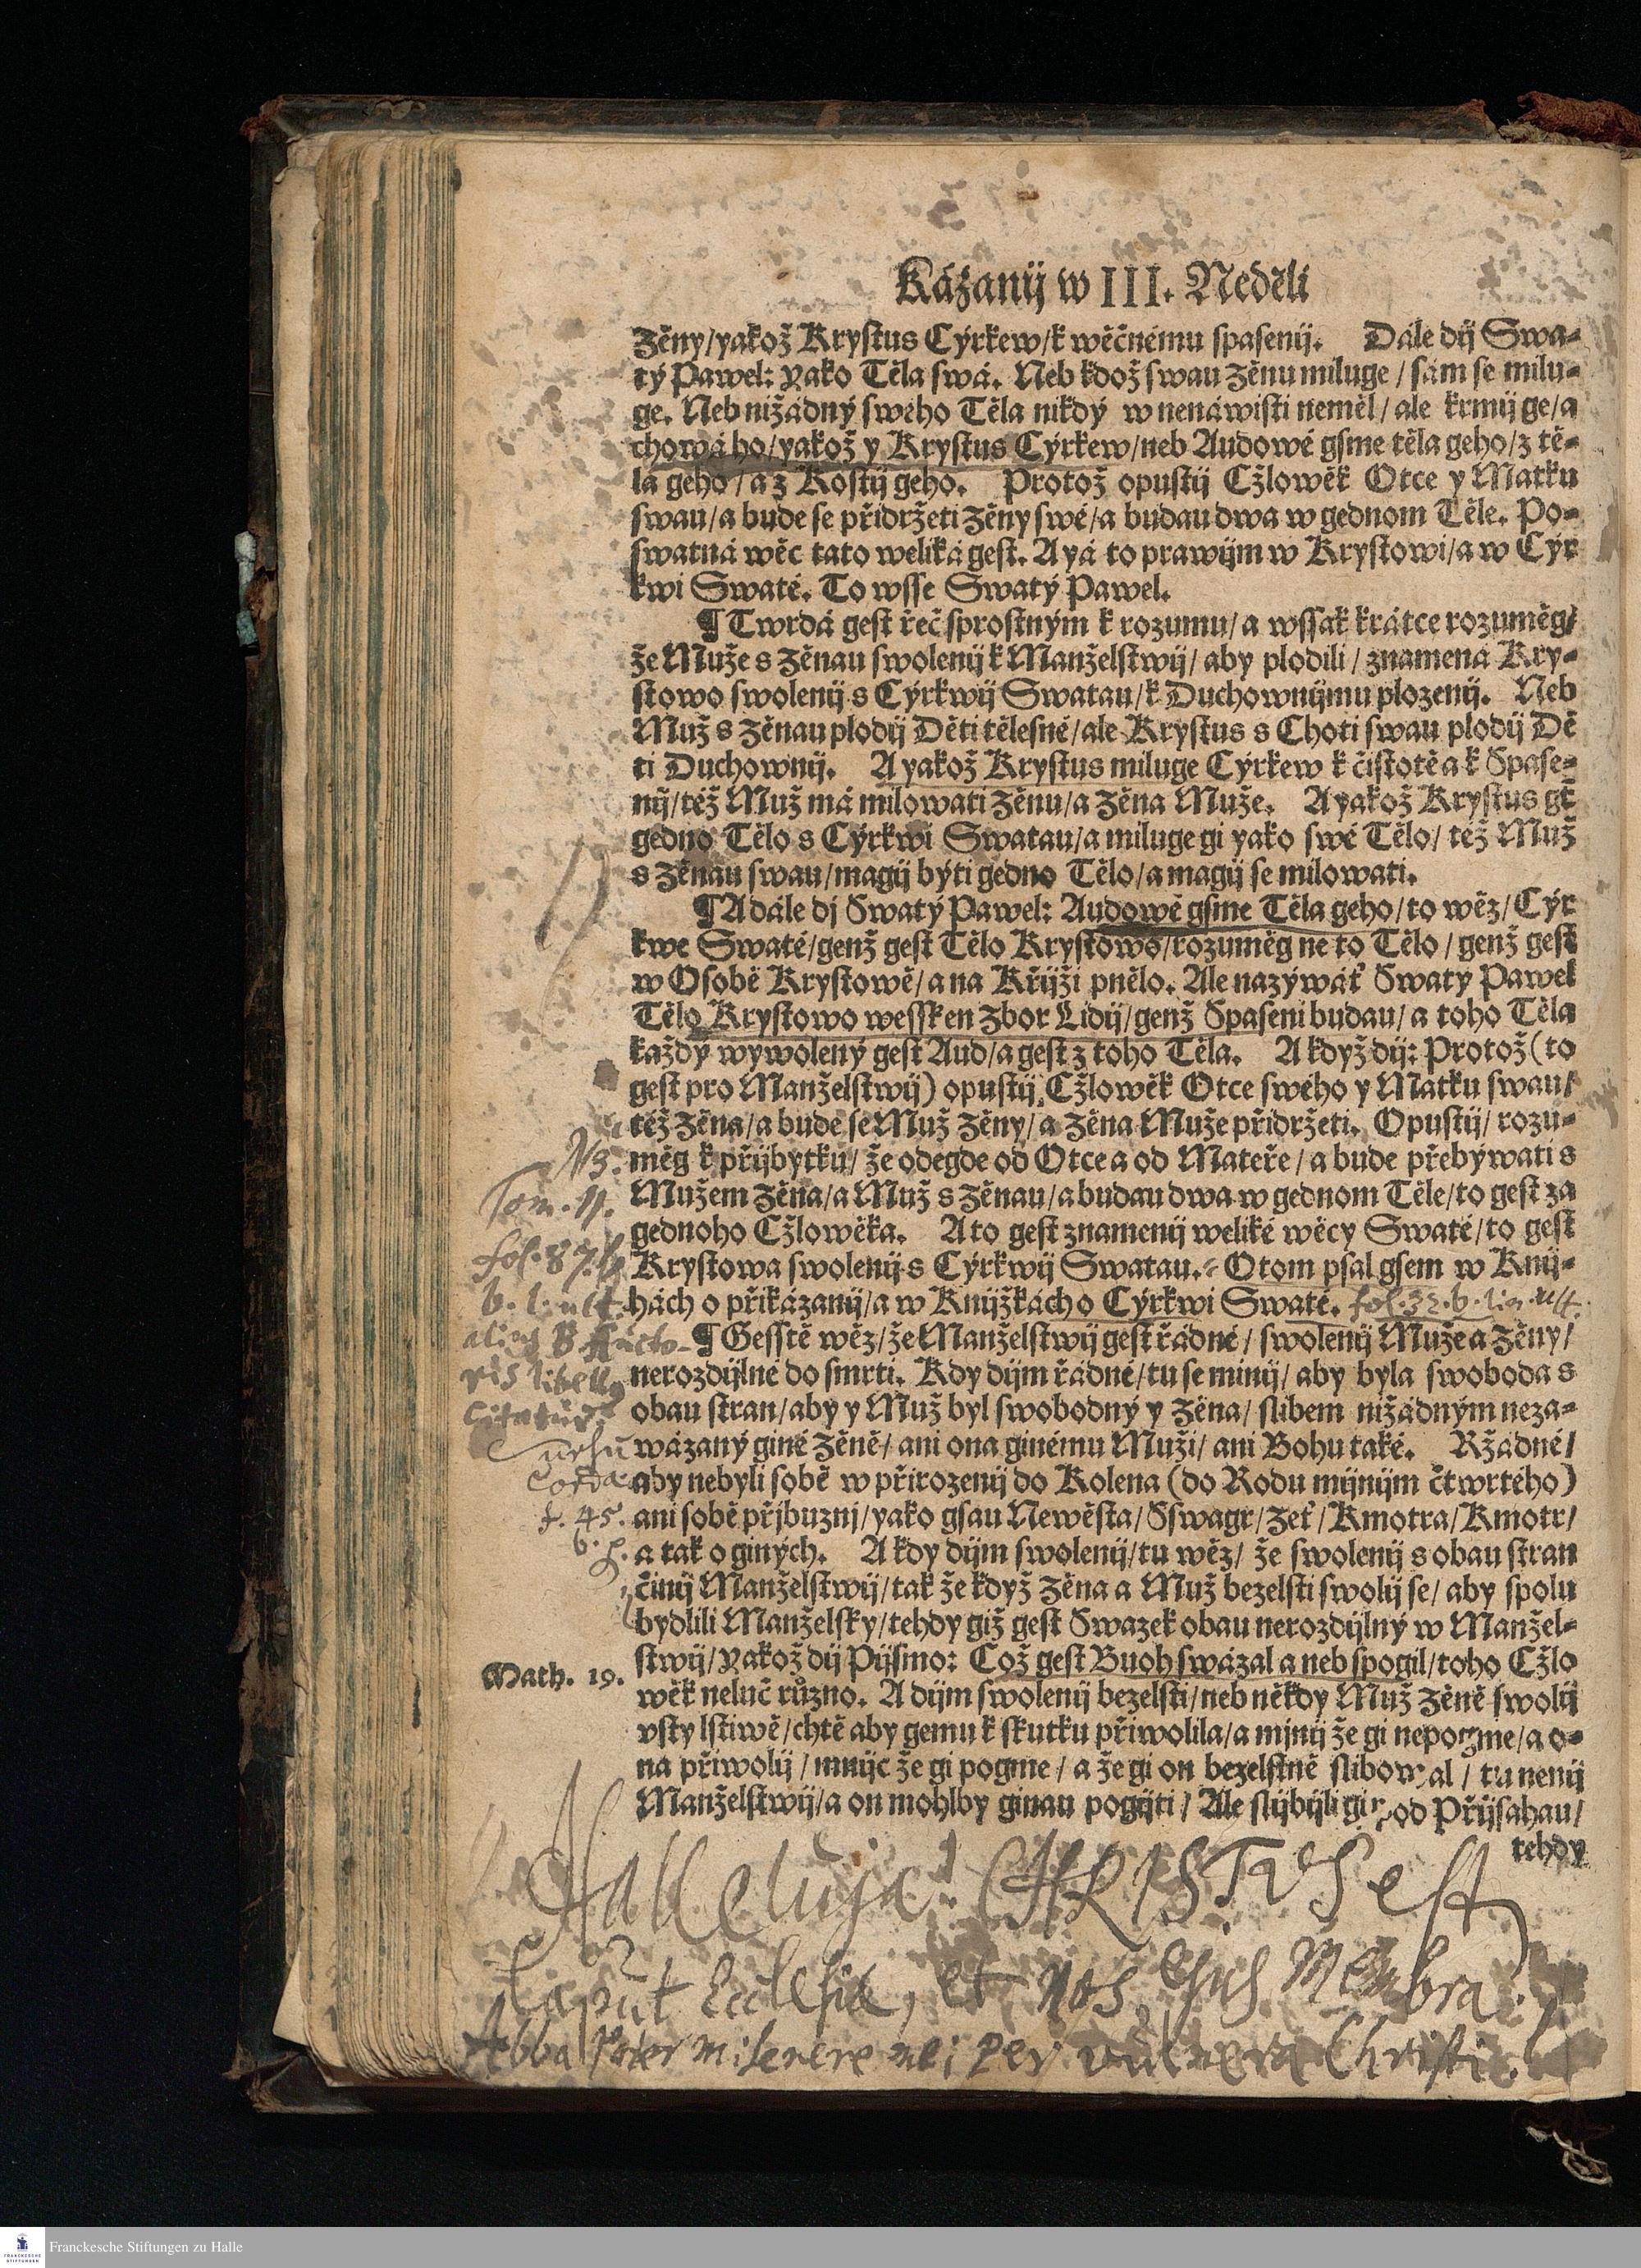 Kázanij w III. Neděli
Ženy/yakož Krystus Cýrkew/k wěčnému spasenij. Dále dij Swa-
tý Pawel: Yako Těla swá. Neb kdož swau Ženu miluge/sám se milu-
ge. Neb nižádný swého Těla nikdý w nenáwisti neměl/ale krmij ge/a
chowá ho/yakož y Krystus Cýrkew/neb Audowé gsme těla geho/z tě-
la geho/a z Kostij geho. Protož opustij Cžlowěk Otce y Matku
swau/a bude se přidržeti Ženy swé/a budau dwa w gednom Těle. Po-
swatná wěc tato weliká gest. A yá to prawijm w Krystowi/a w Cýr
kwi Swaté. To wsse Swatý Pawel.
¶ Twrdá gest řeč sprostným k rozumu/a wssak krátce rozuměg/
že Muže s Ženau swolenij k Manželstwij/aby plodili/znamená Kry-
stowo swolenij s Cýrkwij Swatau/k Duchownijmu plozenij. Neb
Muž s Ženau plodij Děti tělesné/ale Krystus s Choti swau plodij Dě
ti Duchownij. A yakož Krystus miluge Cýrkew k čistotě a k Spase-
nij/též Muž má milowati Ženu/a Žena Muže. A yakož Krystus gt
gedno Tělo s Cýrkwi Swatau/a miluge gi yako swé Tělo/též Muž
s Ženau swau/magij býti gedno Tělo/a magij se milowati.
¶ A dále dj Swatý Pawel: Audowé gsme Těla geho/to wěz/Cýr
kwe Swaté/genž gest Tělo Krystowo/rozuměg ne to Tělo/genž gest
w Osobě Krystowě/a na Křijži pnělo. Ale nazýwáť Swatý Pawel
Tělo Krystowo wessken Zbor Lidij/genž Spaseni budau/a toho Těla
každý wywolený gest Aud/a gest z toho Těla. A když dij: Protož (to
gest pro Manželstwij) opustij Cžlowěk Otce swého y Matku swau/
též Žena/a bude se Muž Ženy/a Žena Muže přidržeti. Opustij/rozu-
NB. měg k přijbytku/že odegde od Otce a od Mateře/a bude přebýwati s
Tom. II. Mužem Žena/a Muž s Ženau/a budau dwa w gednom Těle/to gest za
gednoho Cžlowěka. A to gest znamenij weliké wěcy Swaté/to gest
fol. 87. Krystowa swolenij s Cýrkwij Swatau. O tom psal gsem w Knij-
b. l. ult. hách o přikázanij/a w Knijžkách o Cýrkwi Swaté. fol. 32. b. lin. ult.
¶ Gesstě wěz/že Manželstwij gest řádné/swolenij Muže a Ženy/
ris libell9 nerozdijlné do smrti. Kdy dijm řádné/tu se mijnij/aby byla swoboda s
citatur. obau stran/aby y Muž byl swobodný y Žena/slibem nižádným neza-
wázaný giné Ženě/ani ona ginému Muži/ani Bohu také. Ržádné/
aby nebyli sobě w přirozenij do Kolena (do Rodu mijnijm čtwrtého)
f. 45. ani sobě přjbuznj/yako gsau Newěsta/Sswagr/Zeť/Kmotra/Kmotr/
a tak o giných. A kdy dijm swolenij/tu wěz/že swolenij s obau stran
činij Manželstwij/tak že když Žena a Muž bezelsti swolij se/aby spolu
bydlili Manželsky/tehdy giž gest Swazek obau nerozdijlný w Manžel-
Math. 19. stwij/Yakož dij Pijsmo: Což gest Buoh swázal a neb spogil/toho Cžlo
wěk neluč různo. A dijm swolenij bezelsti/neb někdy Muž Ženě swolij
vsty lstiwě/chtě aby gemu k skutku přiwolila/a mjnij že gi nepogme/a o-
na přiwolij/mnijc že gi pogme/a že gi on bezelstně slibowal/tu nenij
Manželstwij/a on mohlby ginau pogijti/Ale slijbijli gi pod Přijsahau/
tehdy
Halleluja! CHRISTUS est
Caput Ecclesiæ, et nos ejus Membra.
Abba Pater miserere mei per vulnera Christi!